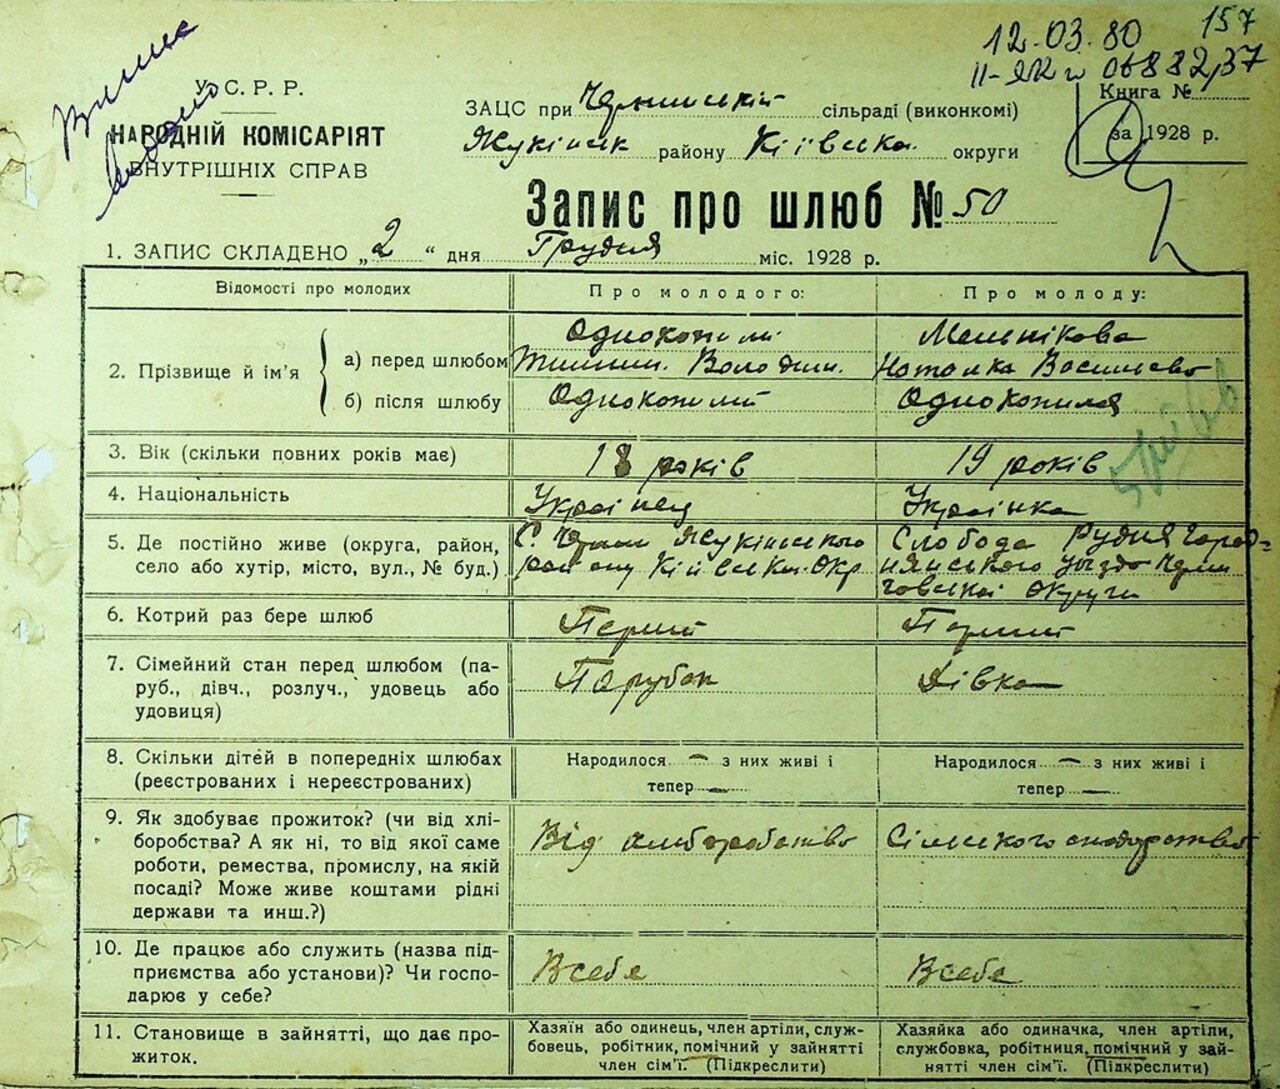 12.03.80
157
У. С. Р. Р.
НАРОДНІЙ КОМІСАРІЯТ
ВНУТРІШНІХ СПРАВ
ЗАЦС при сільраді (виконкомі)
району Київська округи
Книга №
за 1928 р.
Запис про шлюб № 50
1. ЗАПИС СКЛАДЕНО „2“ дня Грудня міс. 1928 р.
Відомості про молодих
Про молодого:
Про молоду:
2. Прізвище й ім'я
а) перед шлюбом
б) після шлюбу
Однокозий
Тимиш. Володим.
Однокозий
Мельнікова
Наталка Васильево
Однокозила
3. Вік (скільки повних років має)
18 років
19 років
4. Національність
Українец
Українка
5. Де постійно живе (округа, район,
село або хутір, місто, вул., № буд.)
С. Жукінського
району Київська Окр
Слобода Рудня Город=
нянського уызда Черни
говської Округи
6. Котрий раз бере шлюб
Перший
Перший
7. Сімейний стан перед шлюбом (па-
руб., дівч., розлуч., удовець або
удовиця)
Парубок
Дівка
8. Скільки дітей в попередніх шлюбах
(реєстрованих і нереєстрованих)
Народилося — з них живі і
тепер —
Народилося — з них живі і
тепер —
9. Як здобуває прожиток? (чи від хлі-
боробства? А як ні, то від якої саме
роботи, ремества, промислу, на якій
посаді? Може живе коштами рідні
держави та инш.?)
Від хліборобство
Сільского
10. Де працює або служить (назва під-
приємства або установи)? Чи госпо-
дарює у себе?
Всебе
Всебе
11. Становище в зайнятті, що дає про-
житок.
Хазяїн або одинець, член артіли, служ-
бовець, робітник, помічний у зайнятті
член сім'ї. (Підкреслити)
Хазяйка або одиначка, член артіли,
службовка, робітниця, помічний у зай-
нятті член сім'ї. (Підкреслити)